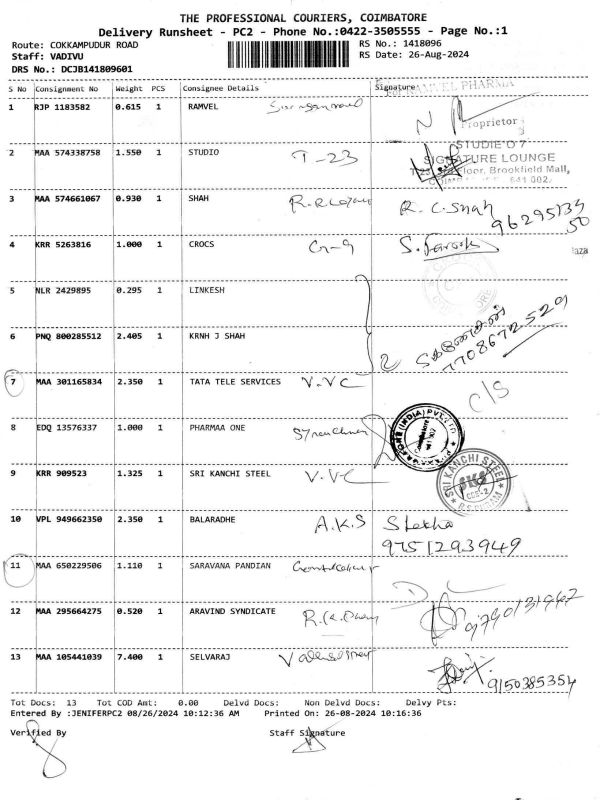 THE PROFESSIONAL COURIERS, COIMBATORE
Delivery Runsheet - PC2 - Phone No.:0422-3505555 - Page No.:1
Route: COKKAMPUDUR ROAD RS No.: 1418096
Staff: VADIVU RS Date: 26-Aug-2024
DRS No.: DCJB141809601
S No Consignment No Weight PCS Consignee Details Signature
SAMVEL PHARMA
1 RJP 1183582 0.615 1 RAMVEL
Proprietor
STUDIE'O 7
2 MAA 574338758 1.550 1 STUDIO T-23
SIGNATURE LOUNGE
Floor, Brookfield Mall,
641 002.
3 MAA 574661067 0.930 1 SHAH R.C.Shah
4 KRR 5263816 1.000 1 CROCS G-9 S.Farook
5 NLR 2429895 0.295 1 LINKESH
6 PNQ 800285512 2.405 1 KRNH J SHAH 2
7708672529
7 MAA 301165834 2.350 1 TATA TELE SERVICES V.V.C C/S
8 EDQ 13576337 1.000 1 PHARMAA ONE
(INDIA) PVT. LTD
9 KRR 909523 1.325 1 SRI KANCHI STEEL V.V.C
SRI KANCHI STEEL
SKS
CBE-2
10 VPL 949662350 2.350 1 BALARADHE A.K.S
9751293949
11 MAA 650229506 1.110 1 SARAVANA PANDIAN
12 MAA 295664275 0.520 1 ARAVIND SYNDICATE
13 MAA 105441039 7.400 1 SELVARAJ
9150385354
Tot Docs: 13 Tot COD Amt: 0.00 Delvd Docs: Non Delvd Docs: Delvy Pts:
Entered By :JENIFERPC2 08/26/2024 10:12:36 AM Printed On: 26-08-2024 10:16:36
Verified By Staff Signature